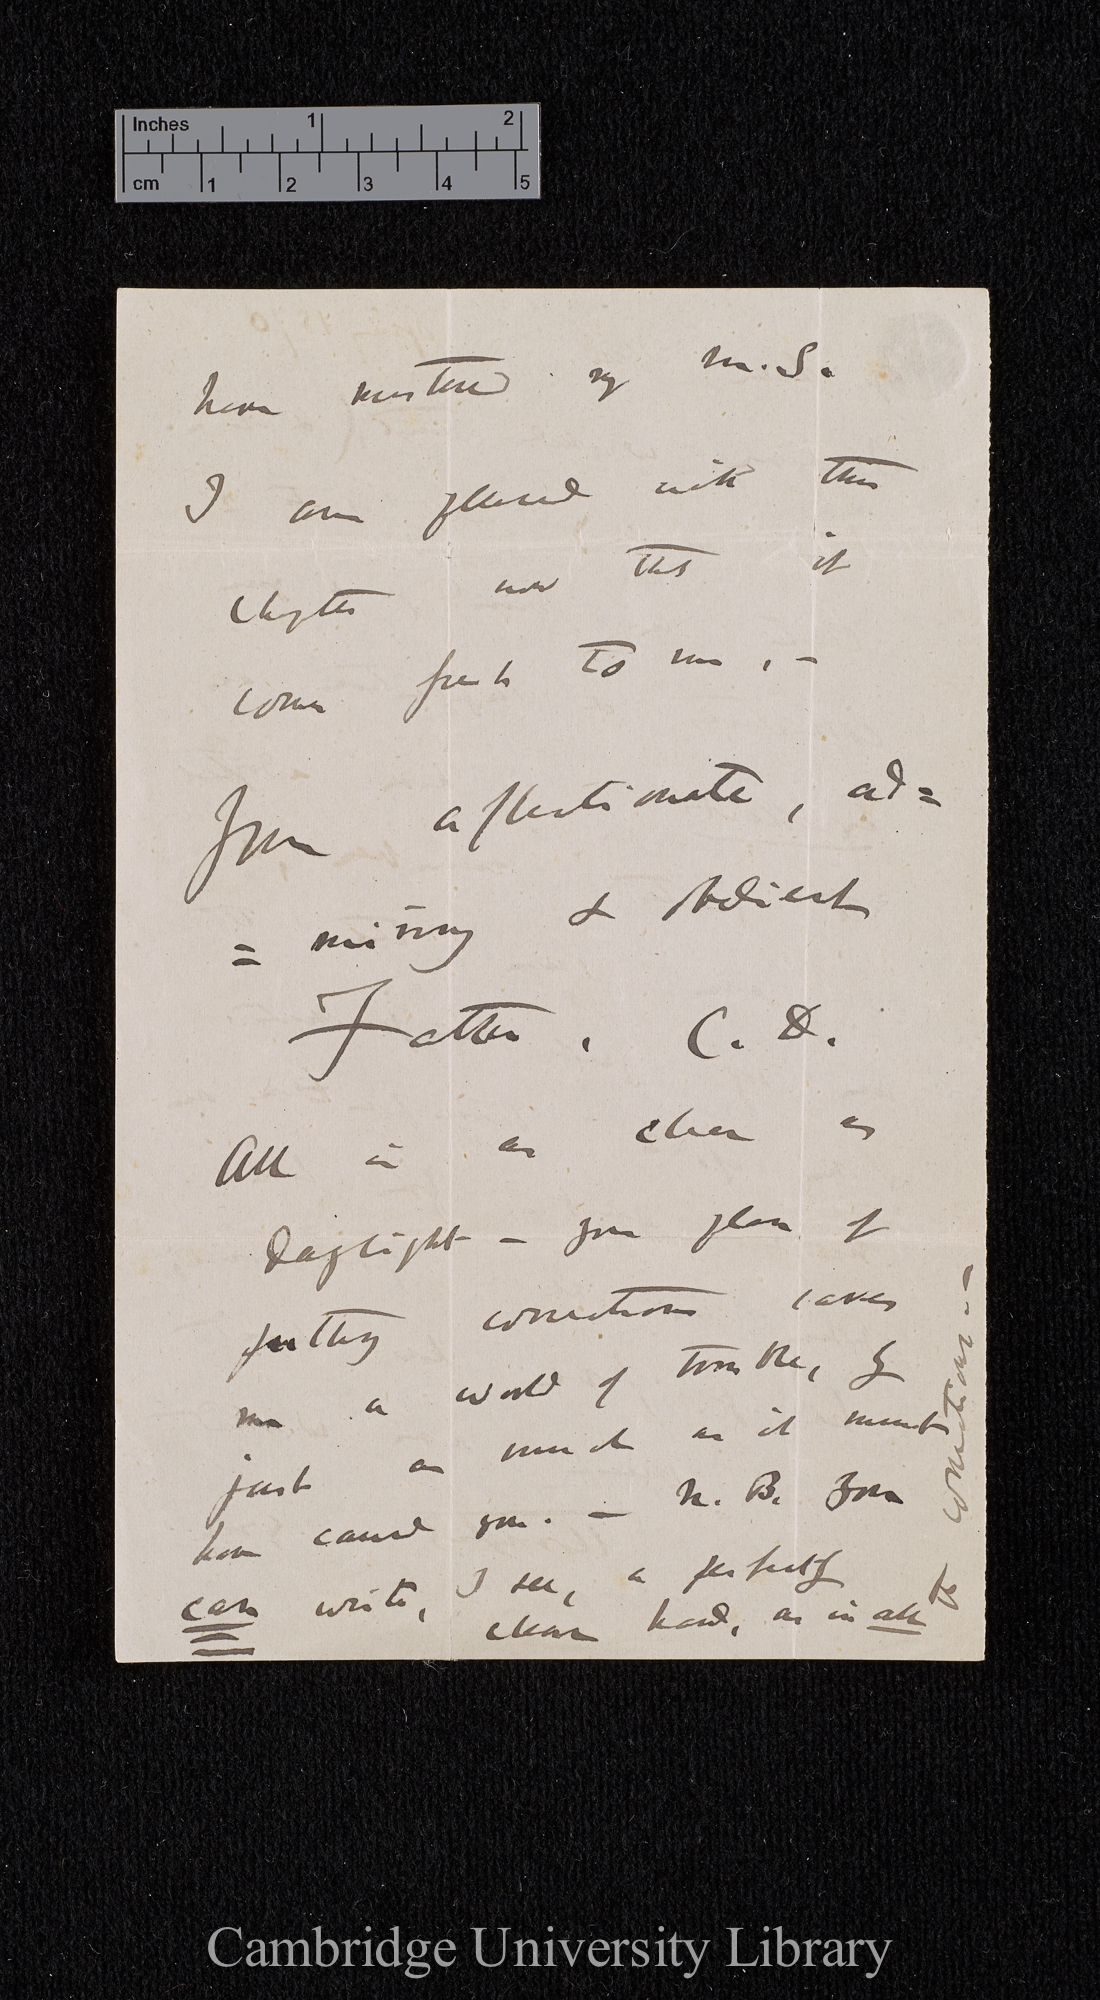 Inches 1 2
cm 1 2 3 4 5
have mastered my M.S.
I am pleased with this
chapter now that it
comes fresh to me. —
Your affectionate, ad=
=miring & obedient
Father. C. D.
All is as clear as
daylight — your plan of
putting corrections saves
me a world of trouble, &
just as much as it must
have caused you. — N. B. You
can write, I see, a perfectly
clear hand, as in all
the corrections. —
Cambridge University Library